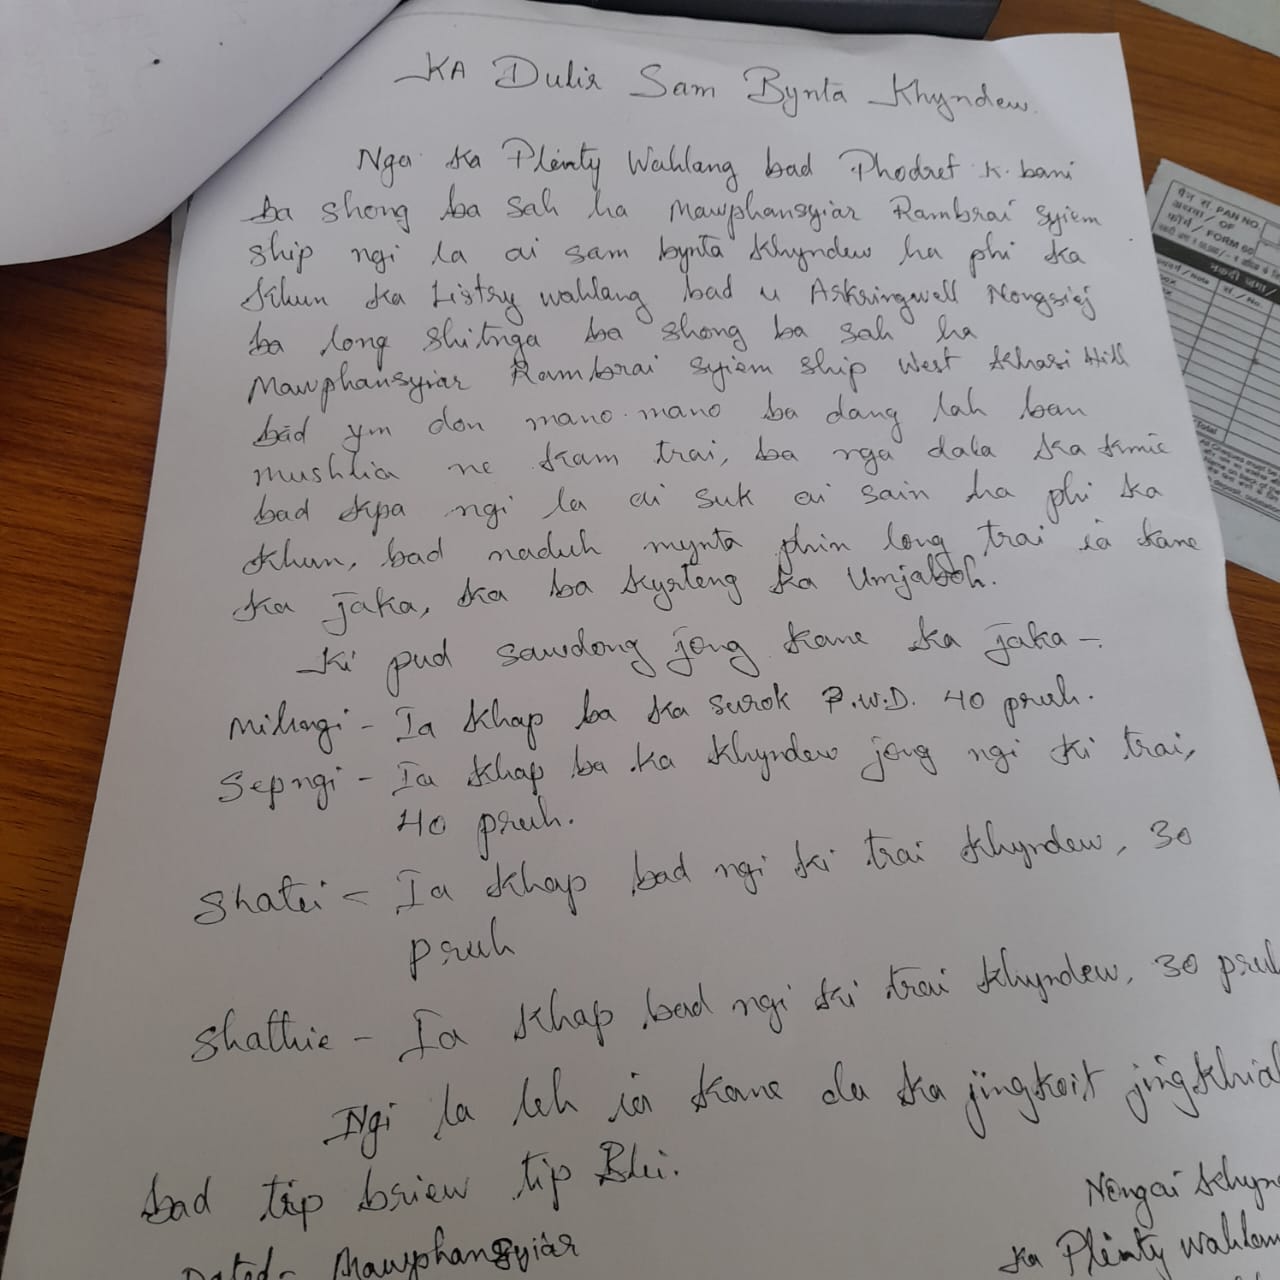 KA Dulir Sam Bynta Khyndew.
Nga ka Plenty Wahlang bad Phodref K. bani
ba shong ba sah ha Mawphansyiar Rambrai Syiem
ship ngi la ai sam bynta khyndew ha phi ka
khun ka Listry wahlang bad u Askringwell Nongsiej
ba long shitnga ba shong ba sah ha
Mawphansyiar Rambrai Syiem ship West Khasi Hill
bad ym don mano-mano ba dang lah ban
mushlia ne kam trai, ba nga dala ka kmie
bad kpa ngi la ai suk ai sain ha phi ka
khun, bad naduh mynta phin long trai ia kane
ka jaka, ka ba kyrteng ka Umjaboh.
Ki pud sawdong jong kane ka jaka -.
Mihngi - Ia khap ba ka surok P.W.D. 40 pruh.
Sepngi - Ia khap ba ka khyndew jong ngi ki trai,
40 pruh.
Shatei = Ia khap bad ngi ki trai khyndew, 30
pruh
Shathie - Ia khap bad ngi ki trai khyndew, 30 pruh
Ngi la leh ia kane da ka jingkoit jingkhiah
bad tip briew tip Blei.
Nongai khyn
Dated - Mawphansyiar
ka Plenty wahlan
पैन सं. PAN NO.
अथवा / OF
फॉर्म / FORM 60
Total